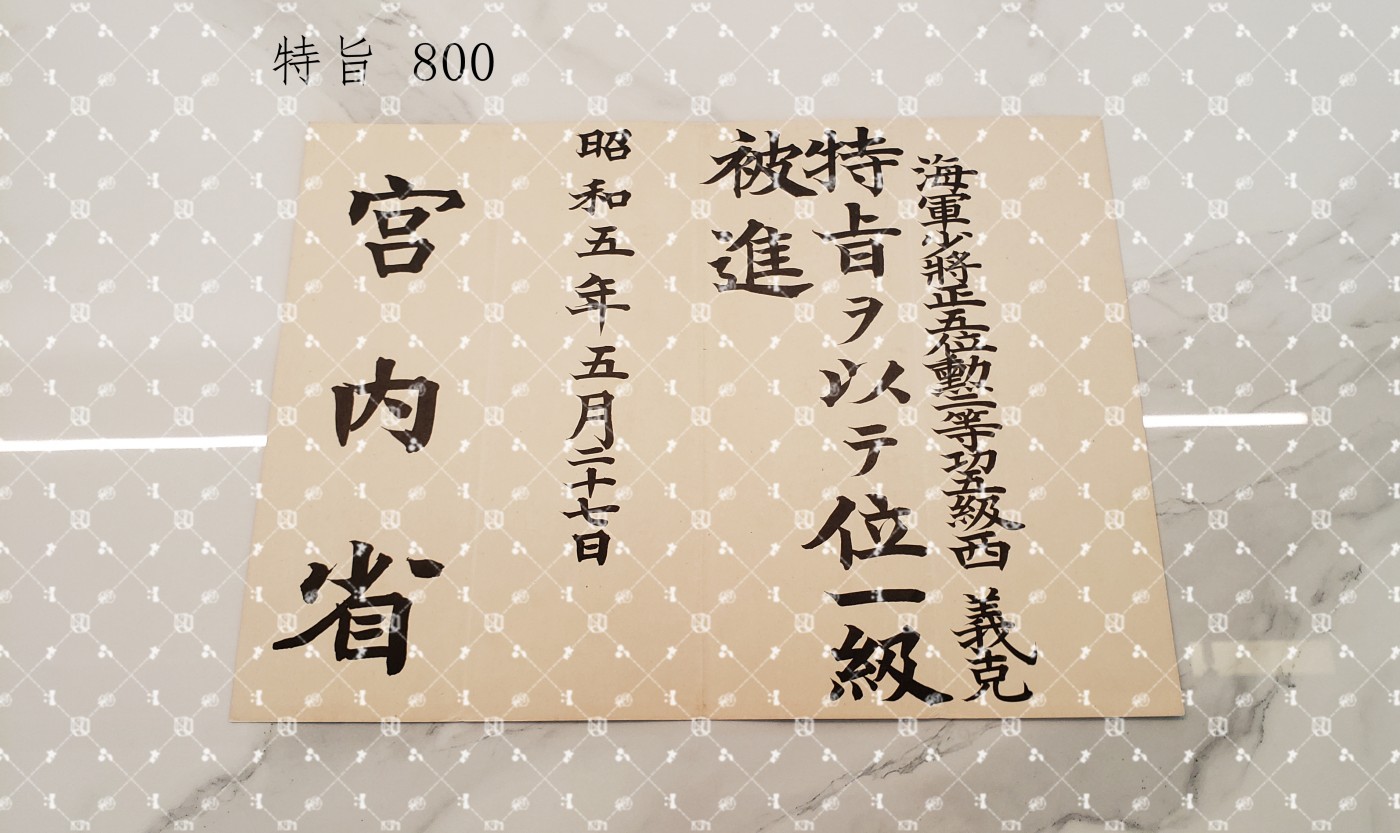 特旨 800
海軍少將正五位勳三等功五級西 義克
特旨ヲ以テ位一級
被進
昭和五年五月二十七日
宮内省